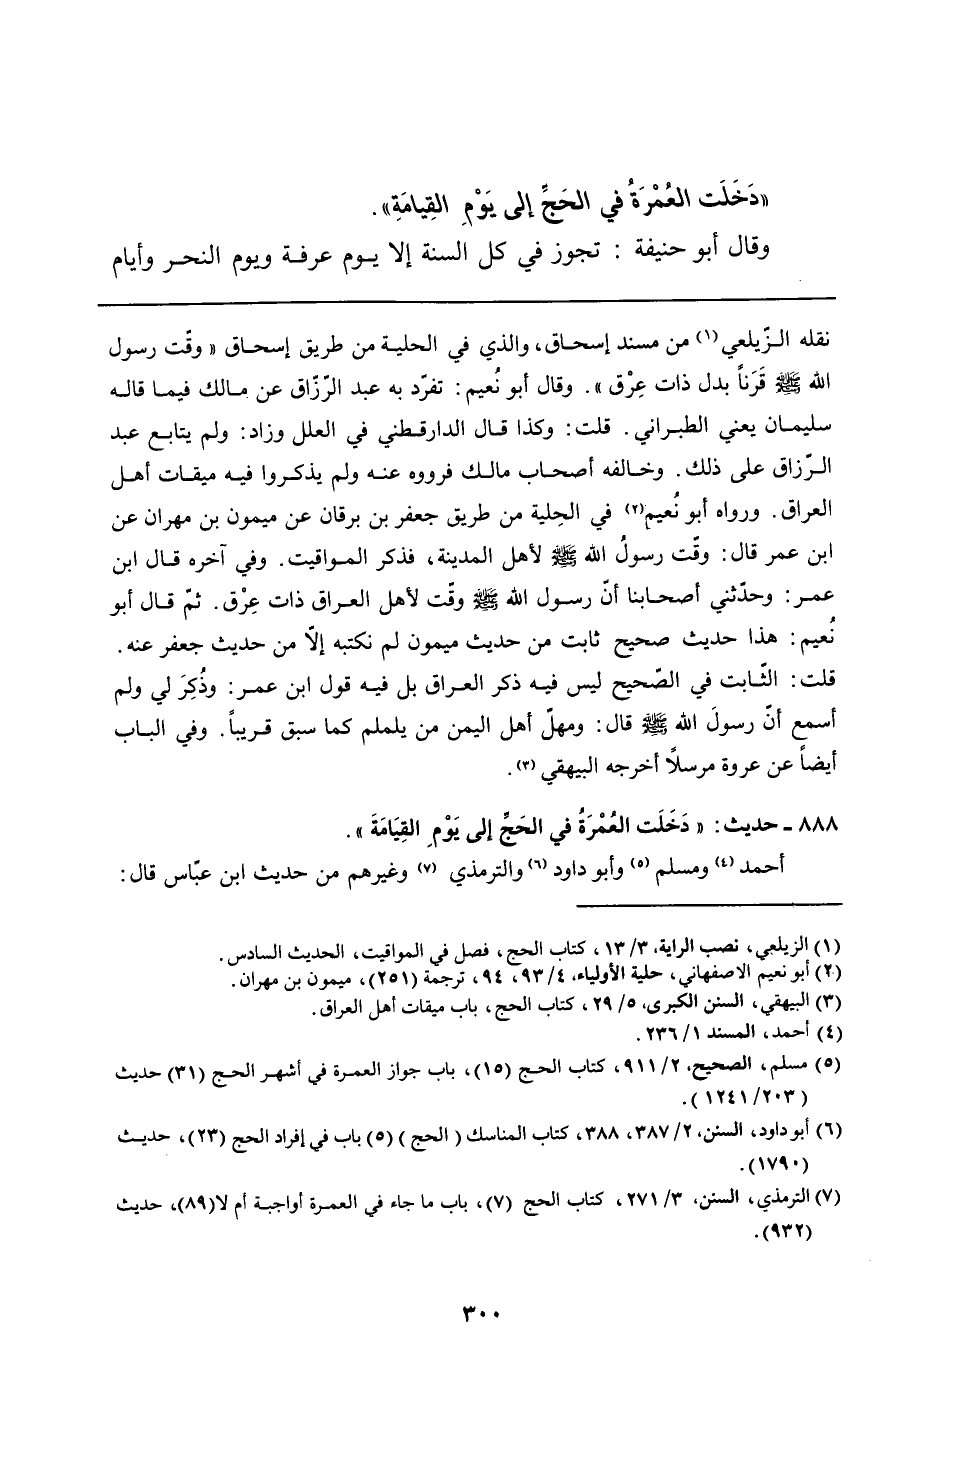 «دَخَلَت العُمْرَةُ في الحَجِّ إلى يَوْمِ القِيامَةِ».
وقال أبو حنيفة : تجوز في كل السنة إلا يوم عرفة ويوم النحر وأيام
نقله الزّيلعي(١) من مسند إسحاق، والذي في الحلية من طريق إسحاق « وقّت رسول
الله ﷺ قَرَناً بدل ذات عِرْق ». وقال أبو نُعيم: تفرّد به عبد الرّزّاق عن مالك فيما قاله
سليمان يعني الطبراني. قلت: وكذا قال الدارقطني في العلل وزاد: ولم يتابع عبد
الرّزاق على ذلك. وخالفه أصحاب مالك فرووه عنه ولم يذكروا فيه ميقات أهل
العراق. ورواه أبو نُعيم(٢) في الحلية من طريق جعفر بن برقان عن ميمون بن مهران عن
ابن عمر قال: وقّت رسولُ الله ﷺ لأهل المدينة، فذكر المواقيت. وفي آخره قال ابن
عمر: وحدّثني أصحابنا أنّ رسول الله ﷺ وقّت لأهل العراق ذات عِرْق. ثمّ قال أبو
نُعيم: هذا حديث صحيح ثابت من حديث ميمون لم نكتبه إلّا من حديث جعفر عنه.
قلت: الثّابت في الصّحيح ليس فيه ذكر العراق بل فيه قول ابن عمر: وذُكِرَ لي ولم
أسمع أنّ رسولَ الله ﷺ قال: ومهلّ أهل اليمن من يلملم كما سبق قريباً. وفي الباب
أيضاً عن عروة مرسلاً أخرجه البيهقي (٣).
٨٨٨ ـ حديث: « دَخَلَت العُمْرَةُ في الحَجِّ إلى يَوْمِ القِيَامَةَ ».
أحمد (٤) ومسلم (٥) وأبو داود (٦) والترمذي (٧) وغيرهم من حديث ابن عبّاس قال:
(١) الزيلعي، نصب الراية، ٣/ ١٣ ، كتاب الحج، فصل في المواقيت، الحديث السادس.
(٢) أبو نعيم الاصفهاني، حلية الأولياء، ٤/ ٩٣، ٩٤، ترجمة (٢٥١)، ميمون بن مهران.
(٣) البيهقي، السنن الكبرى، ٥/ ٢٩ ، كتاب الحج، باب ميقات أهل العراق.
(٤) أحمد، المسند ١/ ٢٣٦.
(٥) مسلم، الصحيح، ٢/ ٩١١، كتاب الحج (١٥)، باب جواز العمرة في أشهر الحج (٣١) حديث
(٢٠٣/ ١٢٤١ ).
(٦) أبو داود، السنن، ٢/ ٣٨٧، ٣٨٨، كتاب المناسك ( الحج ) (٥) باب في إفراد الحج (٢٣)، حديث
(١٧٩٠).
(٧) الترمذي، السنن، ٣/ ٢٧١، كتاب الحج (٧)، باب ما جاء في العمرة أواجبة أم لا(٨٩)، حديث
(٩٣٢).
٣٠٠